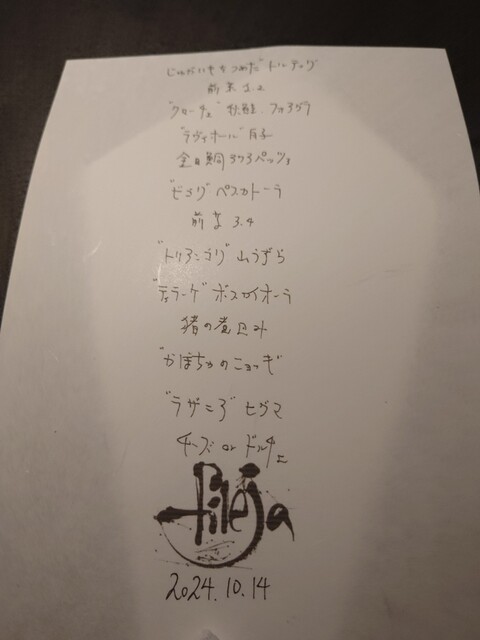 じゃがいもをつめた"トルテッリ"
前菜 1.2
"クローチェ" 秋鮭、フォアグラ
"ラヴィオーリ"
金目鯛 アクアパッツァ
"ピーリ" ペスカトーラ
前菜 3.4
"トリアンゴリ" 山うずら
ボスカイオーラ
猪の煮込み
"かぼちゃのニョッキ"
"ラザニア" ヒグマ
チーズ or ドルチェ
fileja
2024.10.14